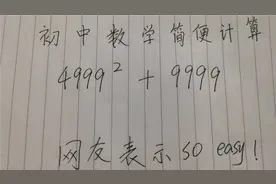 初中数学简便计算
4999² + 9999
网友表示so easy!